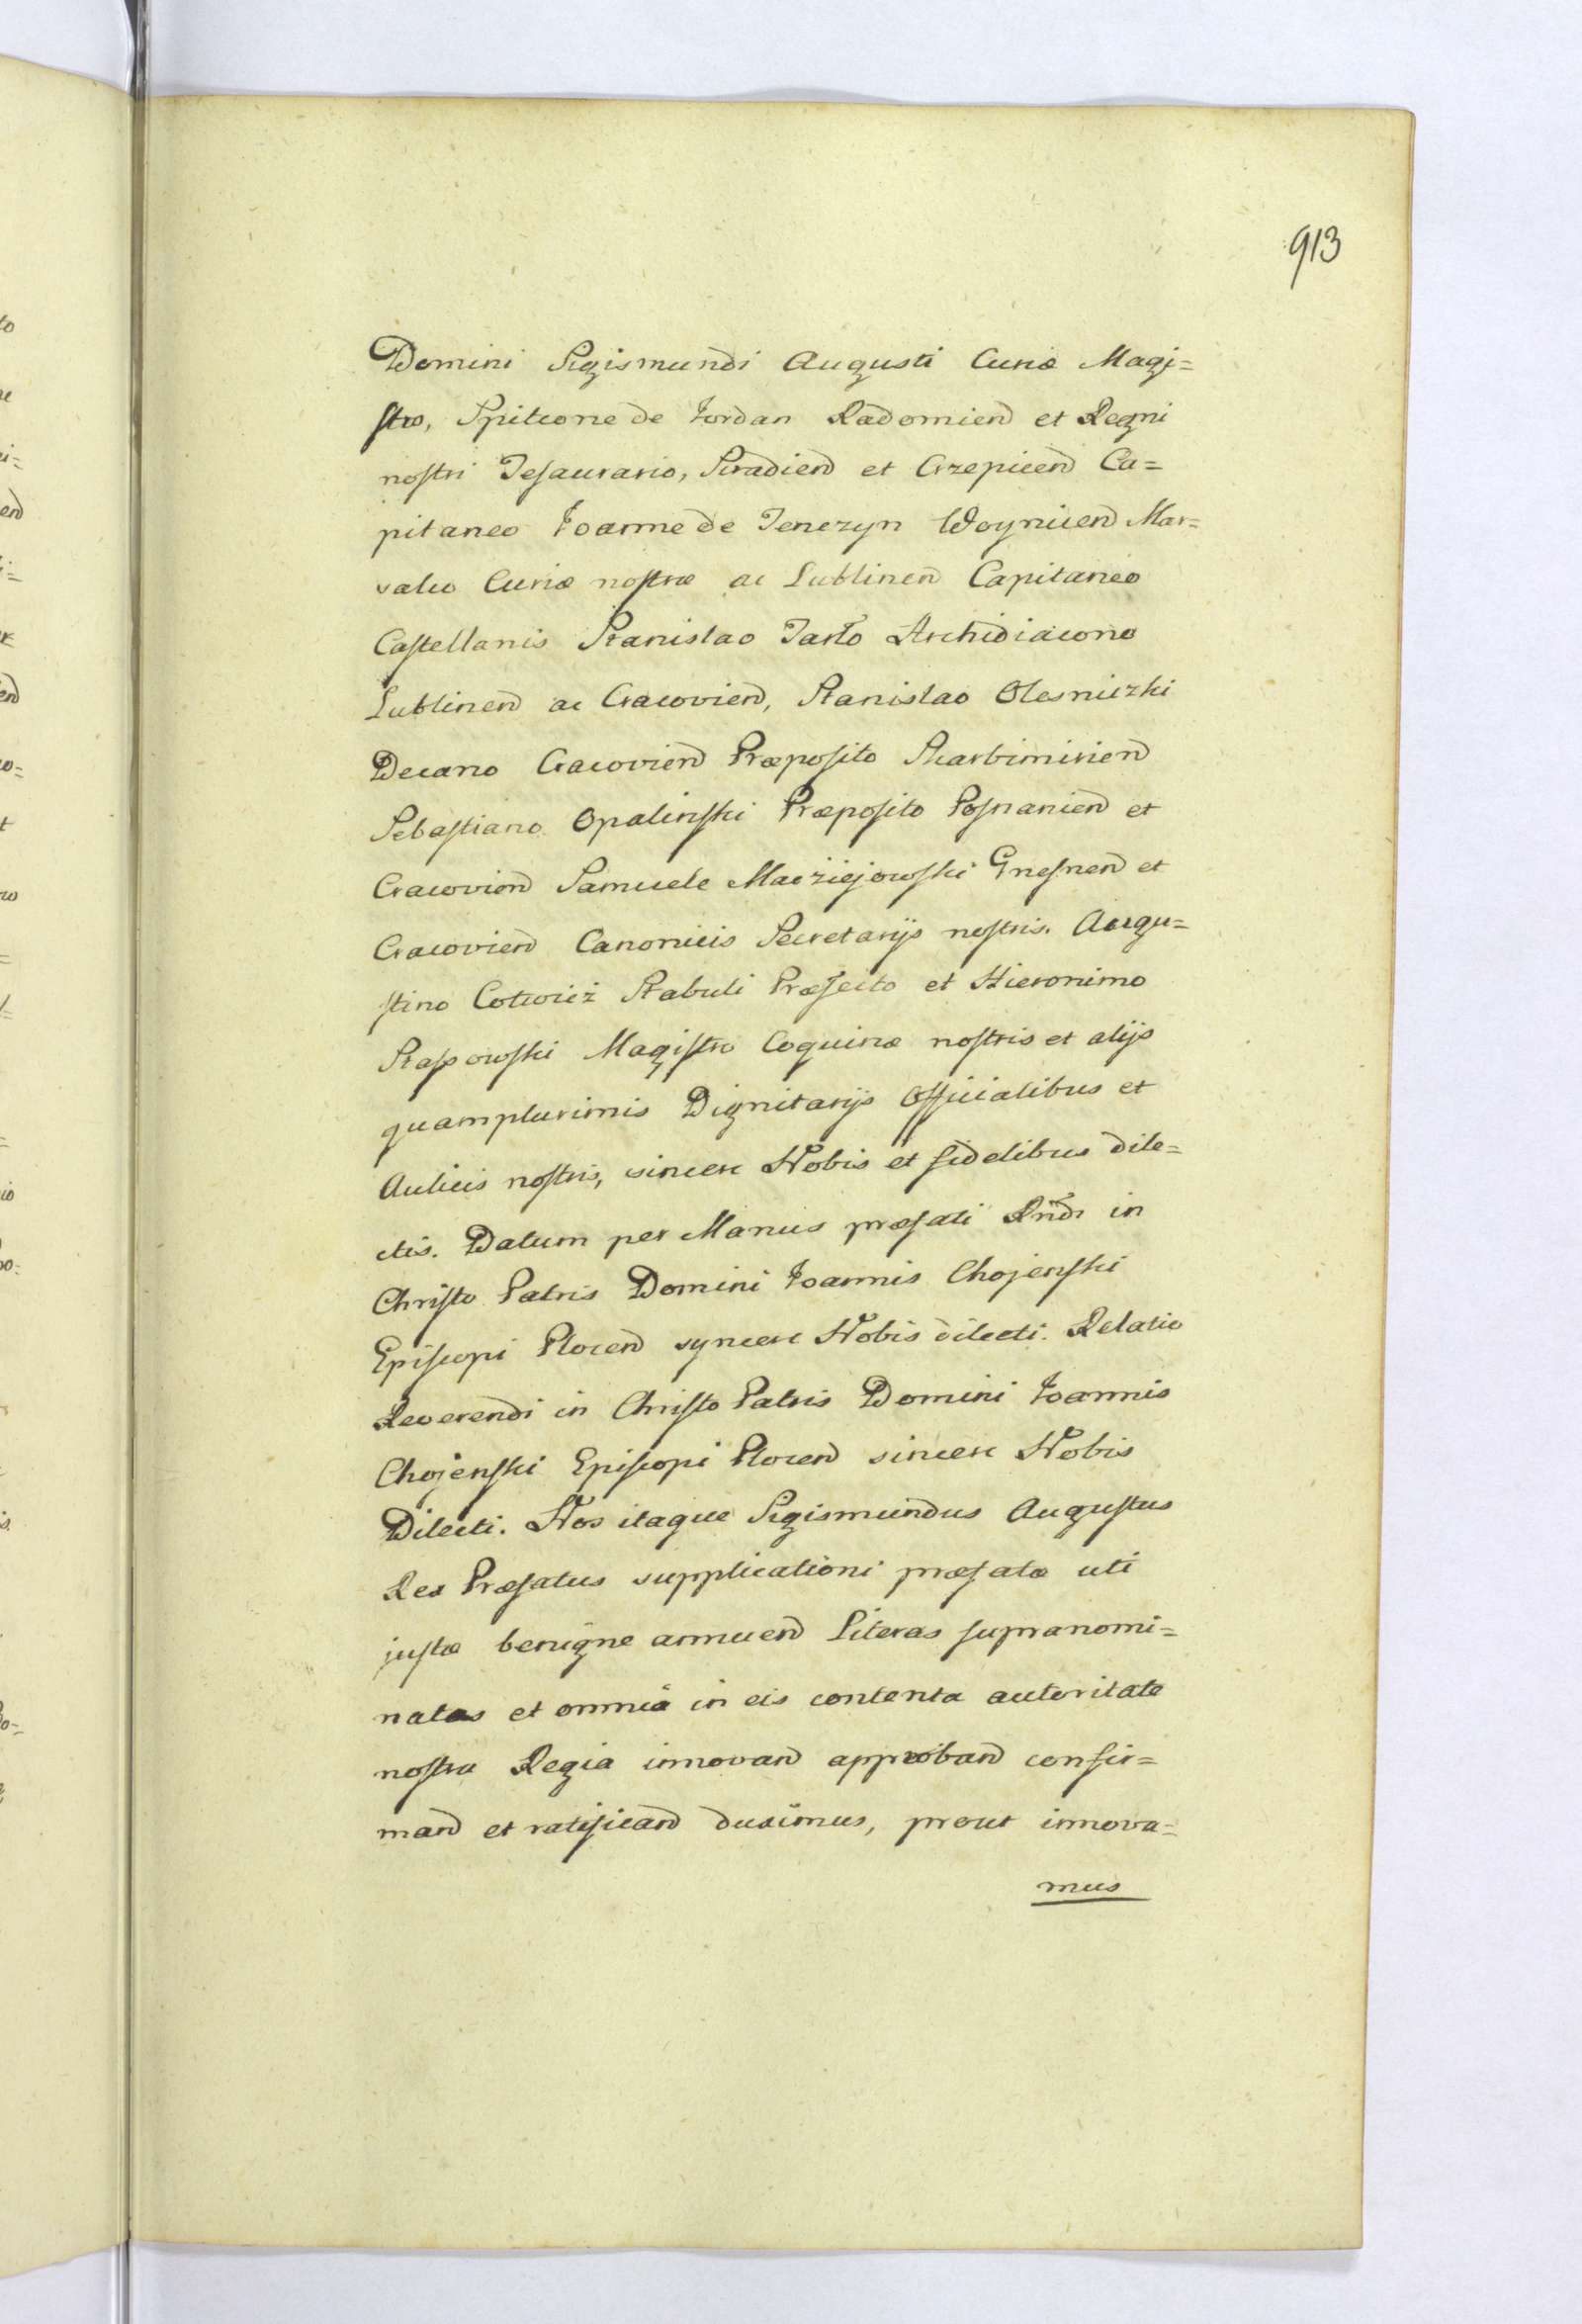 913
Domini Sigismundi Augusti Curiæ Magi=
stro, Spitcone de Jordan Radomien et Regni
nostri Tesaurario, Siradien et Crzepicen Ca=
pitaneo Joanne de Tenczyn Woynicen Mar=
salco Curiæ nostræ ac Lublinen Capitaneo
Castellanis Stanislao Tarło Archidiacono
Lublinen ac Cracovien, Stanislao Olesniczki
Decano Cracovien Præposito Skarbimirien
Sebastiano Opalinski Præposito Posnanien et
Cracovien Samuele Macziejowski Gnesnen et
Cracovien Canonicis Secretarijs nostris. Augu=
stino Cotwicz Stabuli Præfecto et Hieronimo
Stassowski Magistro Coquinæ nostris et alijs
quamplurimis Dignitarijs Officialibus et
Aulicis nostris, sincere Nobis et fidelibus dile=
ctis. Datum per Manus præfati Rndi in
Christo Patris Domini Joannis Chojenski
Episcopi Plocen syncere Nobis dilecti. Relatio
Reverendi in Christo Patris Domini Joannis
Chojenski Episcopi Plocen sincere Nobis
Dilecti. Nos itaque Sigismundus Augustus
Rex Præfatus supplicationi præfatæ uti
justæ benigne annuen Literas supranomi=
natas et omnia in eis contenta autoritate
nostra Regia innovan approban confir=
man et ratifican duximus, prout innova=
mus